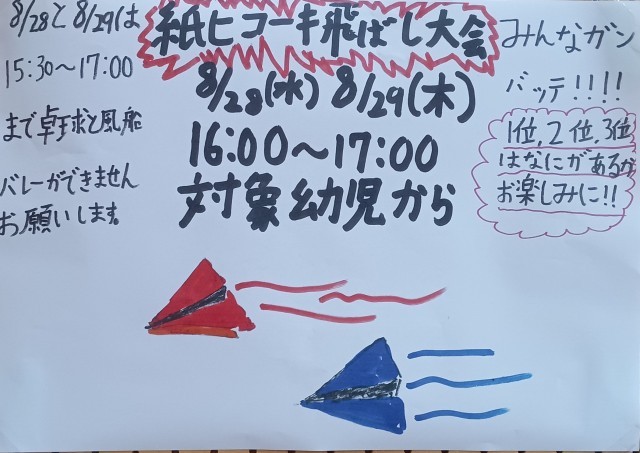 紙ヒコーキ飛ばし大会
8/28(水) 8/29(木)
16:00～17:00
対象幼児から
8/28と8/29は
15:30～17:00
まで卓球と風船
バレーができません
お願いします。
みんなガン
バッテ!!!!
1位,2位,3位
はなにがあるか
お楽しみに!!